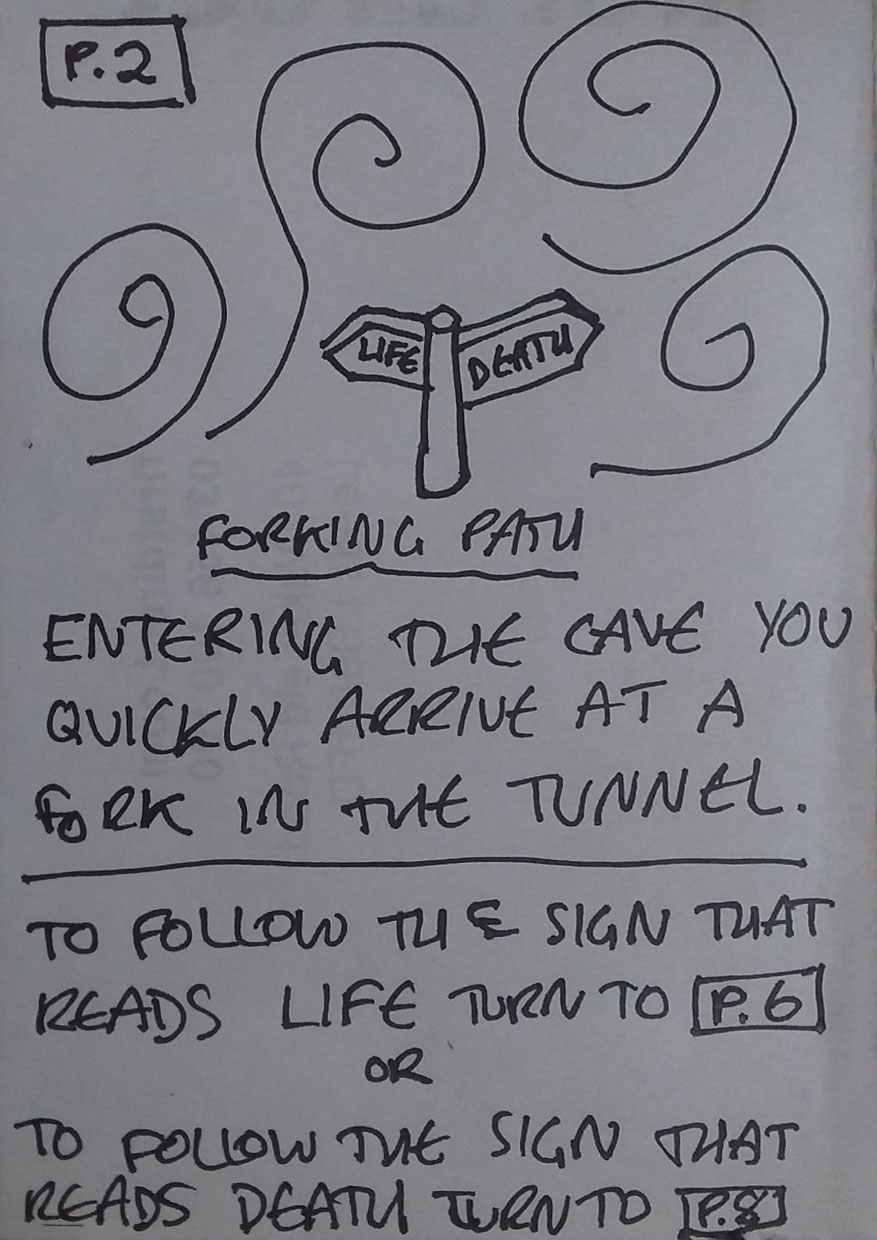 P.2
LIFE
DEATH
FORKING PATH
ENTERING THE CAVE YOU
QUICKLY ARRIVE AT A
FORK IN THE TUNNEL.
TO FOLLOW THE SIGN THAT
READS LIFE TURN TO P.6
OR
TO FOLLOW THE SIGN THAT
READS DEATH TURN TO P.8